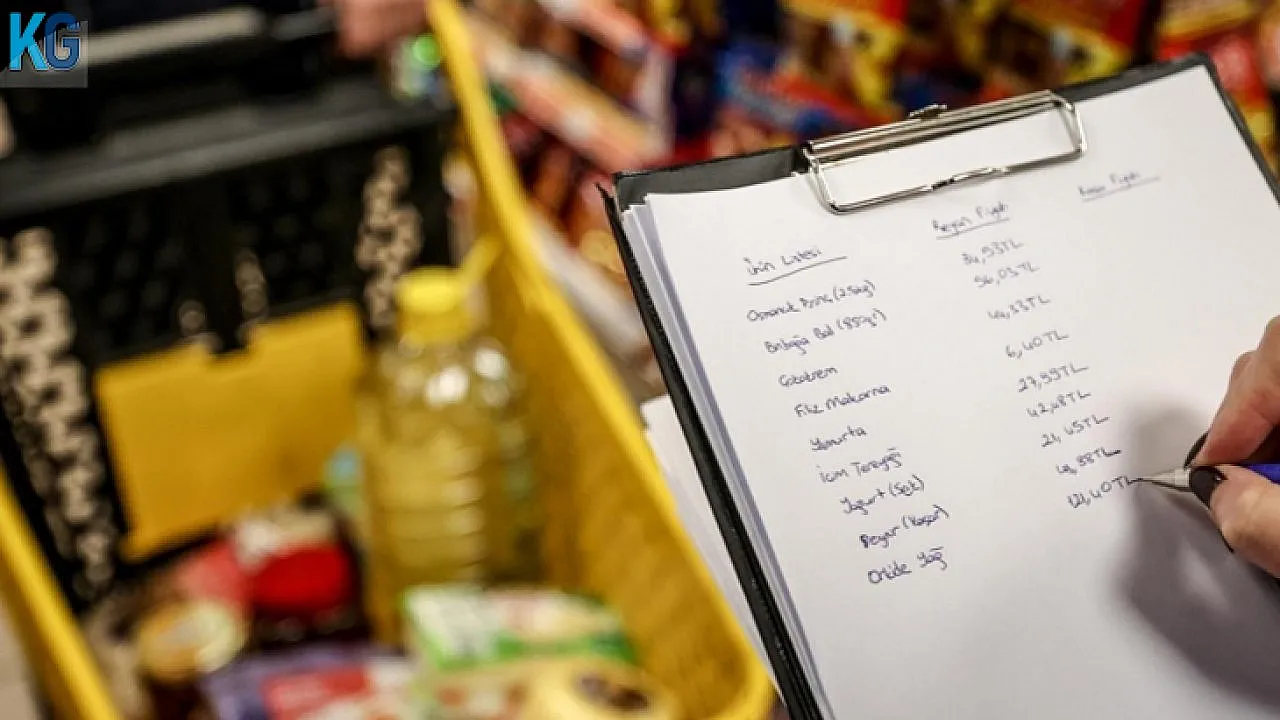 KG
Ürün Listesi Reyon Fiyatı Kasa Fiyatı
Osmancık Pirinç (2.5kg) 84,53TL
Balpa Bal (850gr) 56,03TL
Çokokrem 44,33TL
Filiz Makarna 6,40TL
Yumurta 27,99TL
İçim Tereyağı 42,48TL
Yoğurt (Sek) 21,45TL
Peynir (Kaşar)
Orkide Yağ 121,40TL